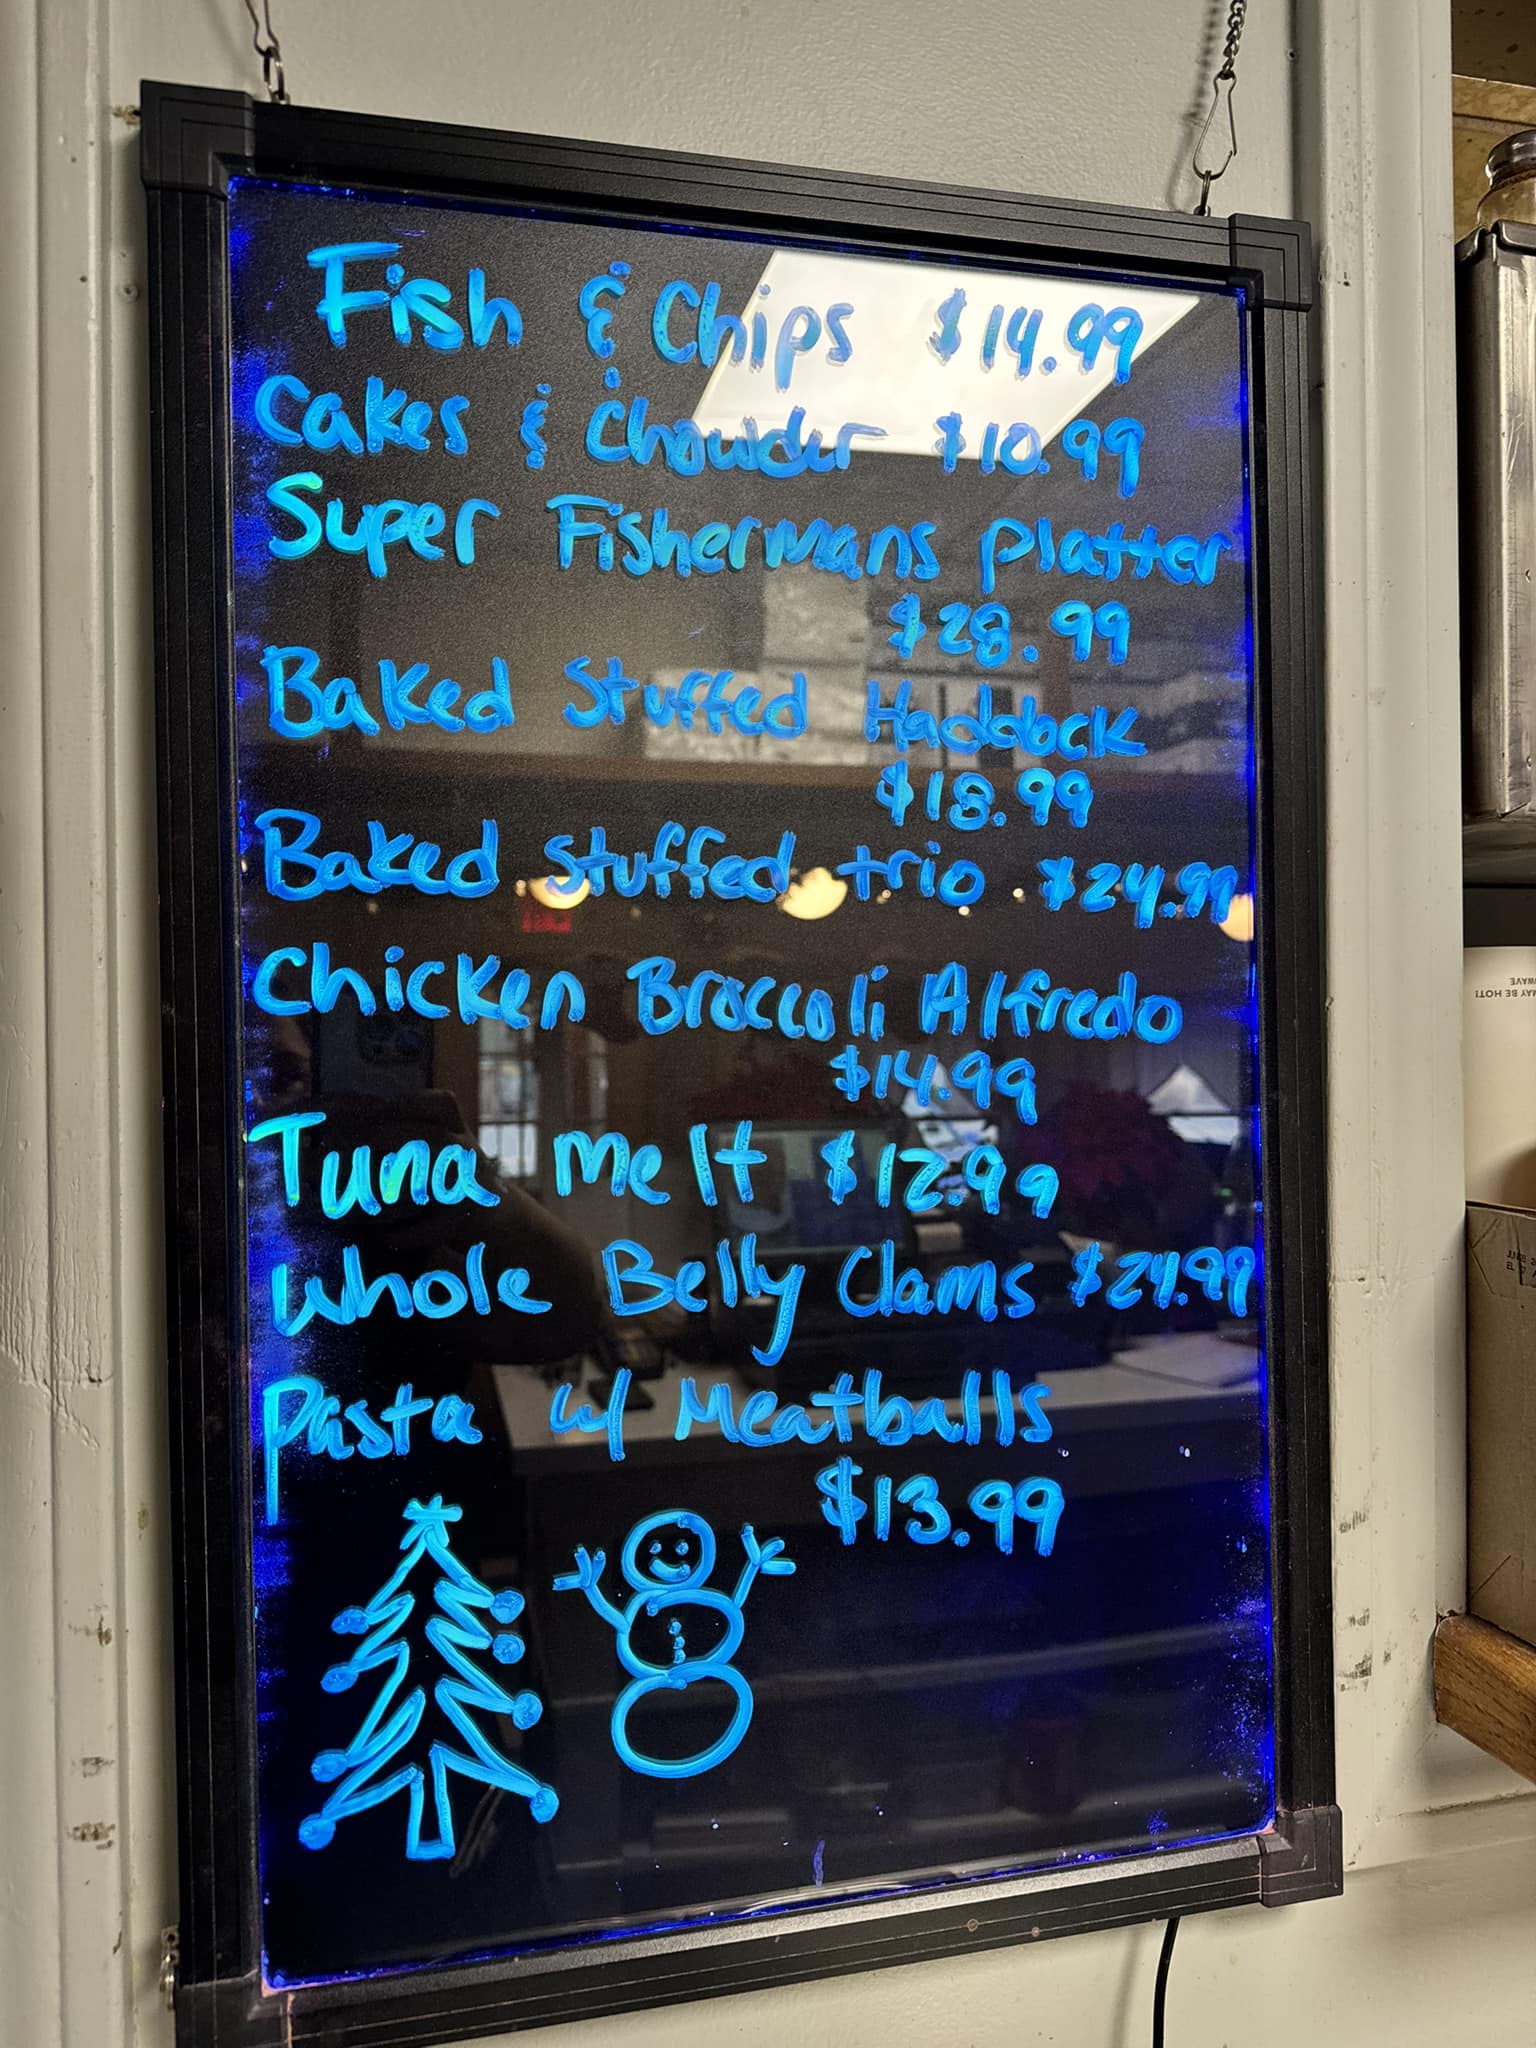 Fish & Chips $14.99
Cakes & Chowder $10.99
Super Fishermans Platter
$28.99
Baked Stuffed Haddock
$18.99
Baked Stuffed trio $24.99
Chicken Broccoli Alfredo
$14.99
Tuna melt $12.99
Whole Belly Clams $24.99
Pasta w/ Meatballs
$13.99
MAY BE HOT!
WAVE